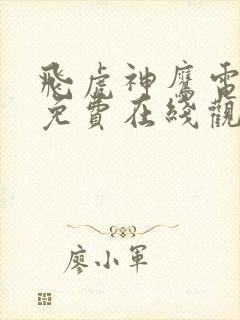 飛虎神鷹電
免費在綫觀
廖小軍